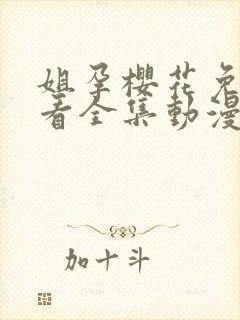 姐孕櫻花免
看全集動漫
加十斗